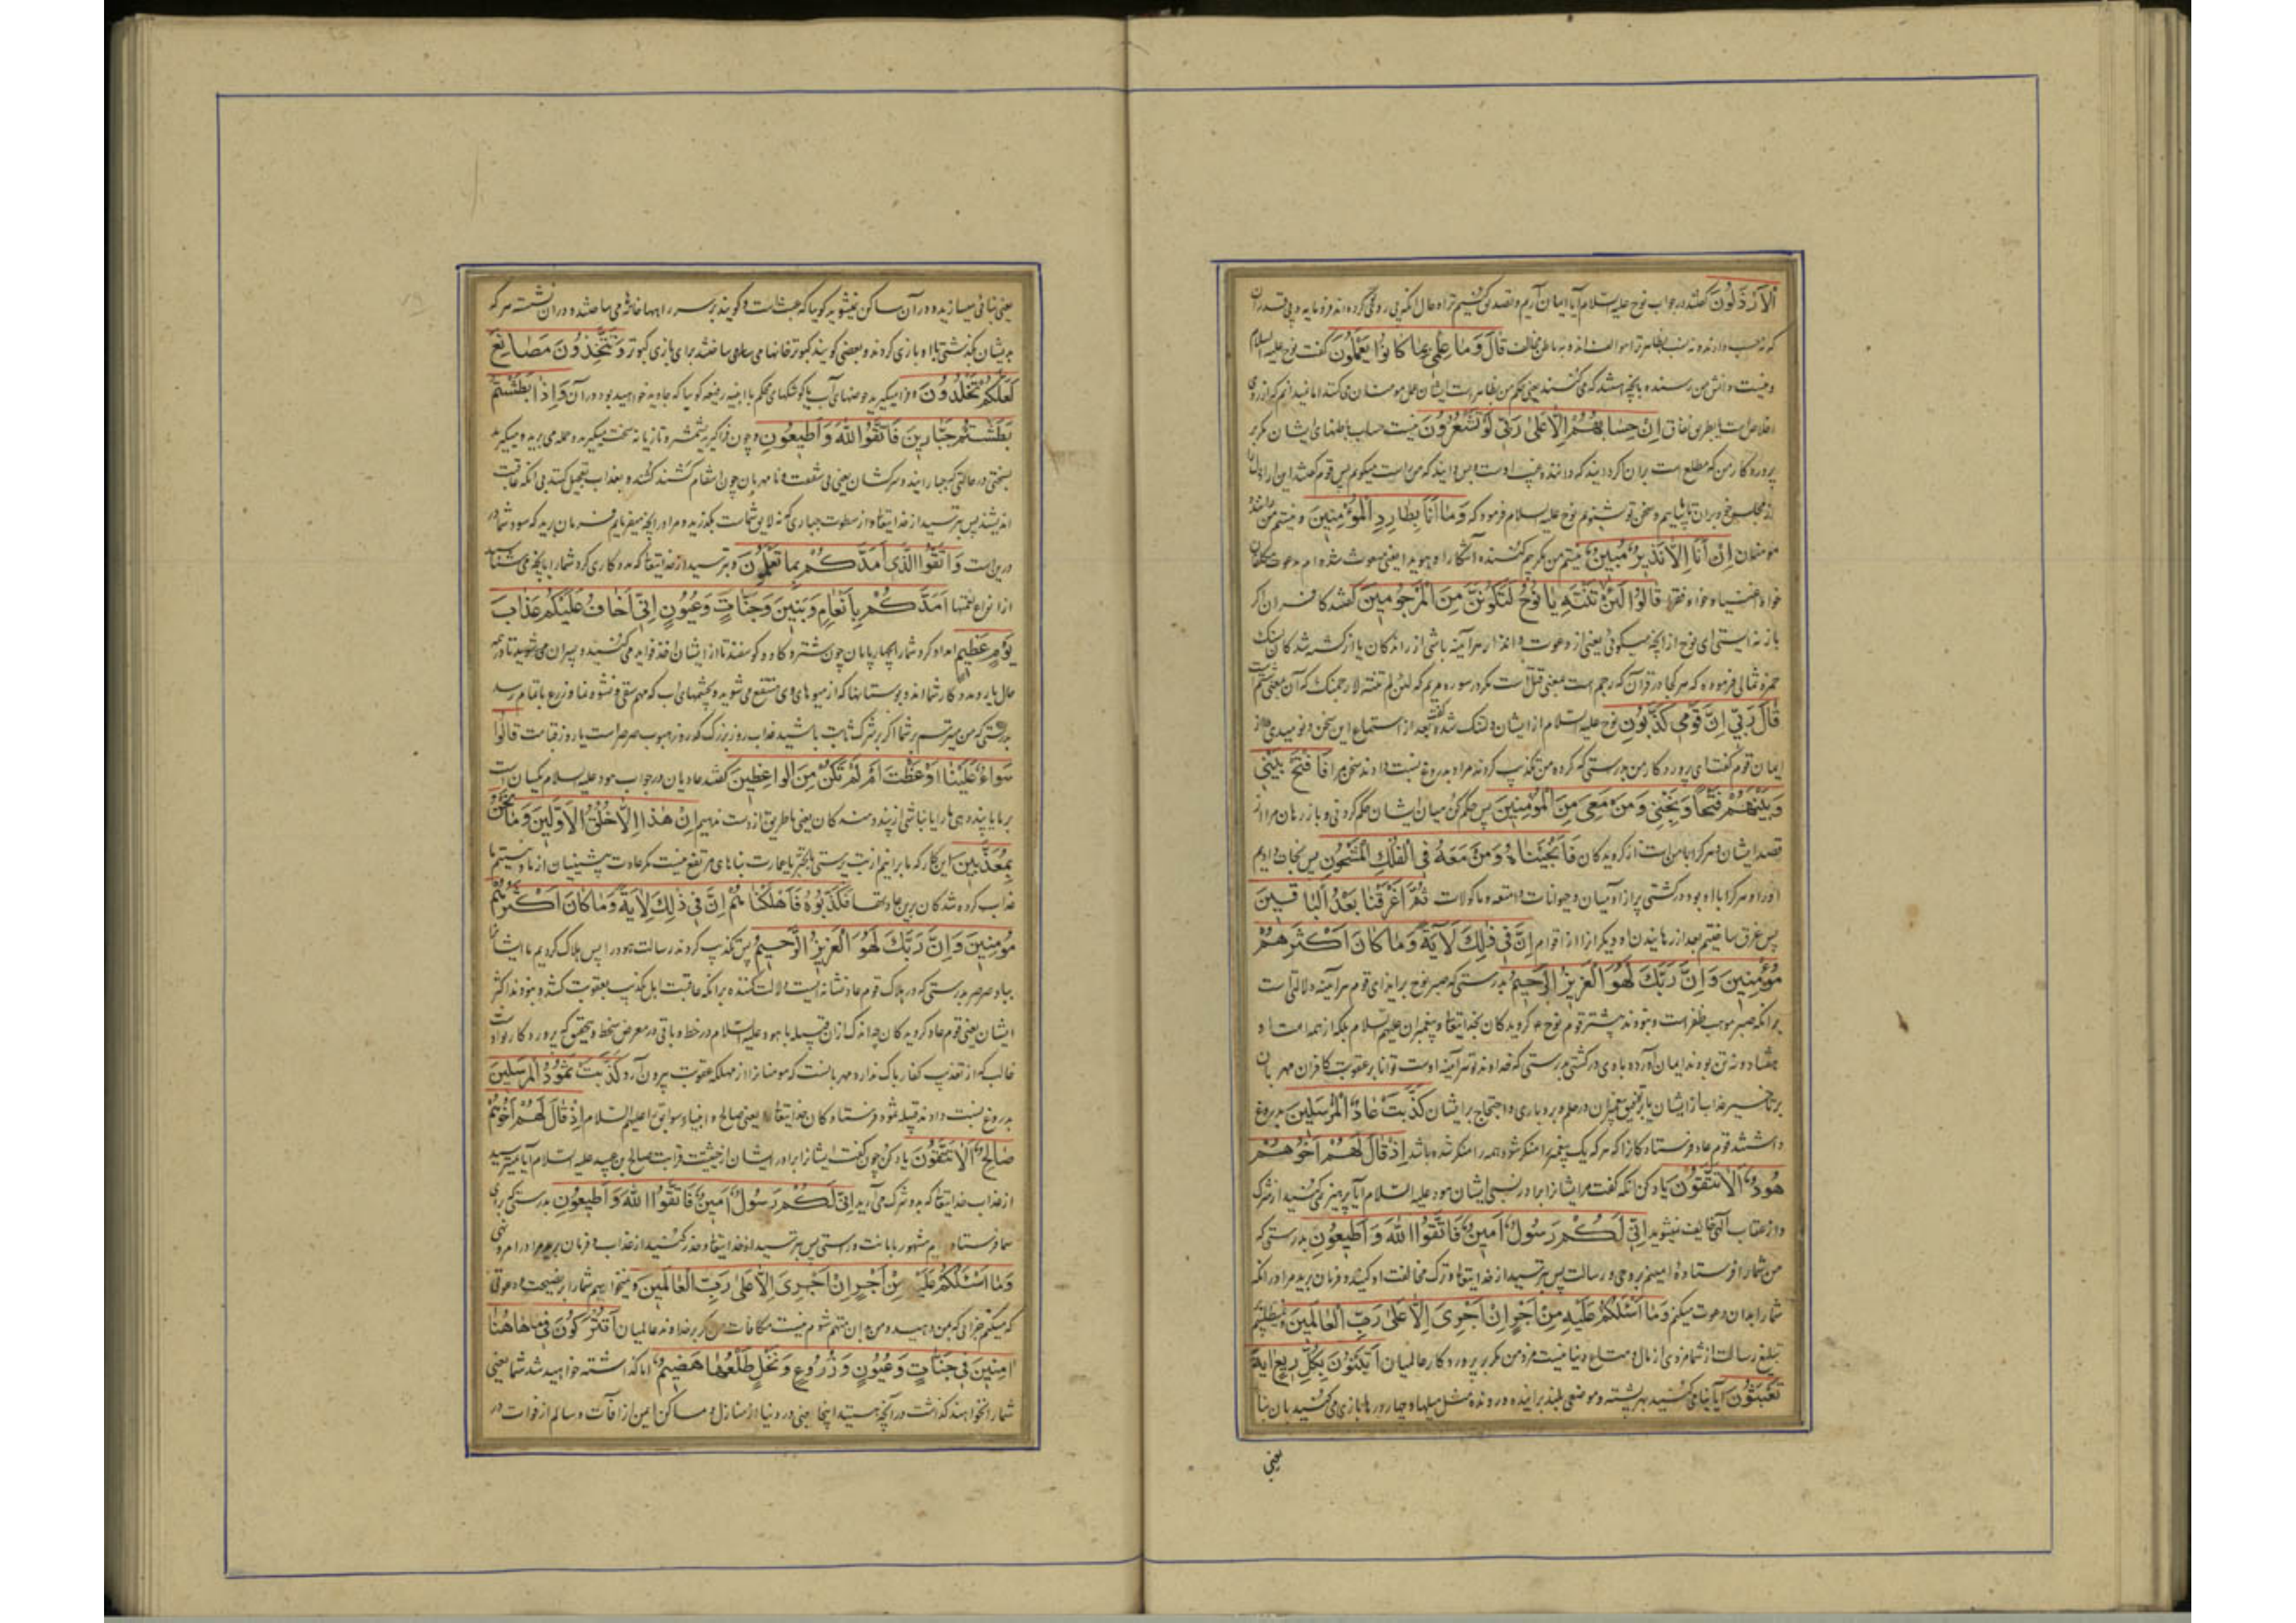 الْأَرْذَلُونَ گفتند در جواب نوح علیه السلام آیا ایمان آریم و تصدیق کنیم ترا و حال آنکه پی روی کرده اند فرومایه و بی قدران
که نه حسب دارند و نه نسب بظاهر ترا موافقت اند و بباطن مخالف قَالَ وَمَا عِلْمِي بِمَا كَانُوا يَعْمَلُونَ گفت نوح علیه السلام
و نیست دانش من رسنده بآنچه هستند که می کنند یعنی حکم من بظاهر است ایشان عمل مومنان می کنند اما نمیدانم که از روی
اخلاص است یا بطریق نفاق إِنْ حِسَابُهُمْ إِلَّا عَلَىٰ رَبِّي لَوْ تَشْعُرُونَ نیست حساب باطنهای ایشان مگر بر
پروردکار من که مطلع است بران اگر دانید که داننده غیب اوست و بس دانید که من راست میگویم پس قوم گفتند این اراذل را
از مجلس خود بران تا بیاییم و سخن تو شنویم نوح علیه السلام فرمود که وَمَا أَنَا بِطَارِدِ الْمُؤْمِنِينَ و نیستم من راننده
مومنان إِنْ أَنَا إِلَّا نَذِيرٌ مُبِينٌ نیستم من مگر بیم کننده آشکارا و هویدا یعنی مبعوث شده ام بدعوت مکلفان
خواه اغنیا و خواه فقرا قَالُوا لَئِنْ لَمْ تَنْتَهِ يَا نُوحُ لَتَكُونَنَّ مِنَ الْمَرْجُومِينَ گفتند کافران اگر
باز نه ایستی ای نوح از آنچه میکوئی یعنی از دعوت و انذار هر آینه باشی از راندکان یا از کشته شدکان بسنک
حمزه ثمالی فرموده که هر کجا در قرآن که رجم است بمعنی قتل است مگر در سوره مریم که لئن لم تنته لارجمنک که آن بمعنی شتم است
قَالَ رَبِّ إِنَّ قَوْمِي كَذَّبُونِ نوح علیه السلام از ایشان دلتنک شده گفت بعد از استماع این سخن و نومیدی از
ایمان قوم گفت ای پروردکار من بدرستی که گروه من تکذیب کردند مرا و بدروغ نسبت دادند سخن مرا فَافْتَحْ بَيْنِي
وَبَيْنَهُمْ فَتْحًا وَنَجِّنِي وَمَنْ مَعِيَ مِنَ الْمُؤْمِنِينَ پس حکم کن میان من و ایشان حکم کردنی و باز رهان مرا از
قصد ایشان و هر که با من است از گرویدکان فَأَنْجَيْنَاهُ وَمَنْ مَعَهُ فِي الْفُلْكِ الْمَشْحُونِ پس نجات دادیم
او را و هر که با او بود در کشتی پر از آدمیان و حیوانات و امتعه و ماکولات ثُمَّ أَغْرَقْنَا بَعْدُ الْبَاقِينَ
پس غرق ساختیم بعد از رهانیدن او دیگرانرا از اقوام إِنَّ فِي ذَٰلِكَ لَآيَةً وَمَا كَانَ أَكْثَرُهُمْ
مُؤْمِنِينَ وَإِنَّ رَبَّكَ لَهُوَ الْعَزِيزُ الرَّحِيمُ بدرستی که صبر نوح بر ایذای قوم هر آینه دلالتی است
بر انکه صبر موجب ظفر است و نبودند بیشتر قوم نوح گرویدکان بخدایتعالی و پیغمبران علیهم السلام بلکه از همه امت او
هشتاد و نه تن بودند ایمان آورده با وی در کشتی بدرستی که خداوند تو هر آینه اوست توانا بر عقوبت کافران مهربان
بر تاخیر عذاب از ایشان كَذَّبَتْ عَادٌ الْمُرْسَلِينَ بدروغ
داشتند قوم عاد فرستادکانرا که هر که یک پیغمبر را منکر شود همه را منکر شده باشد إِذْ قَالَ لَهُمْ أَخُوهُمْ
هُودٌ أَلَا تَتَّقُونَ یاد کن آنکه گفت مر ایشانرا برادر نسبی ایشان هود علیه السلام آیا پرهیز نمی کنید از شرک
و از عقاب الهی خایف نمیشوید إِنِّي لَكُمْ رَسُولٌ أَمِينٌ فَاتَّقُوا اللَّهَ وَأَطِيعُونِ بدرستی که
من شما را فرستاده ام امینم بر وحی و رسالت پس بترسید از خدایتعالی و ترک مخالفت او کنید و فرمان برید مرا در آنکه
شما را بدان دعوت میکنم وَمَا أَسْأَلُكُمْ عَلَيْهِ مِنْ أَجْرٍ إِنْ أَجْرِيَ إِلَّا عَلَىٰ رَبِّ الْعَالَمِينَ و نمیطلبم
تبلیغ رسالت از شما مزدی از مال و متاع دنیا نیست مزد من مگر بر پروردکار عالمیان أَتَبْنُونَ بِكُلِّ رِيعٍ آيَةً
تَعْبَثُونَ آیا بنا می کنید بهر پشته و موضعی بلند بر آینده و رونده مثل میلها و چهار درها بازی می کنید بان بنا
یعنی
یعنی بنائی میسازید و در آن ساکن نمیشوید گویا که عبث است و گویند بر سر راهها خانها می ساختند و در آن نشسته هر که
بدیشان بگذشتی بلا و بازی کردند و بعضی گویند کبوتر خانها می ساختند برای بازی کبوتر وَتَتَّخِذُونَ مَصَانِعَ
لَعَلَّكُمْ تَخْلُدُونَ و فرا میگیرید حوضهای آب یا کوشکهای محکم با ابنیه رفیعه گویا که جاوید خواهید بود در آن وَإِذَا بَطَشْتُمْ
بَطَشْتُمْ جَبَّارِينَ فَاتَّقُوا اللَّهَ وَأَطِيعُونِ و چون فرا گیرید بشمشیر و تازیانه سخت میگیرید و حمله می برید و میگیرید
بسختی در حالتی که جبارانید و سرکشان یعنی بی شفقت و نامهربان چون انتقام کشند کشنده بعذاب تعجیل کنند بی انکه عاقبت
اندیشند پس بترسید از خدایتعالی و از سطوت جباری که نه لایق شماست بگذرید و مرا در آنچه میفرمایم فرمان برید که سود شما در
درین است وَاتَّقُوا الَّذِي أَمَدَّكُمْ بِمَا تَعْلَمُونَ و بترسید از خدایتعالی که مددکاری کرد شما را بآنچه می شناسید
از انواع نعمتها أَمَدَّكُمْ بِأَنْعَامٍ وَبَنِينَ وَجَنَّاتٍ وَعُيُونٍ إِنِّي أَخَافُ عَلَيْكُمْ عَذَابَ
يَوْمٍ عَظِيمٍ امداد کرد شما را بچهارپایان چون شتر و کاو و کوسفند تا از ایشان اخذ فواید می کنید و پسران می شوید تا در همه
حال یار و مددکار شما اند و بوستانها که از میوهای وی منتفع می شوید و بچشمهای آب که مهم سقی و نشو و نما و زرع باتمام رسد
بدرستی که من میترسم بر شما اگر بر شرک ثابت باشید عذاب روز بزرگ که روز هبوب صرصر است یا روز قیامت قَالُوا
سَوَاءٌ عَلَيْنَا أَوَعَظْتَ أَمْ لَمْ تَكُنْ مِنَ الْوَاعِظِينَ گفتند عادیان در جواب هود علیه السلام یکسان است
بر ما یا پند دهی ما را یا نباشی از پند دهندکان یعنی ما طریق از دست ندهیم إِنْ هَٰذَا إِلَّا خُلُقُ الْأَوَّلِينَ وَمَا نَحْنُ
بِمُعَذَّبِينَ این کار که ما برانیم از بت پرستی یا تجبر یا عمارت بناهای مرتفع نیست مگر عادت پیشینیان از ما و نیستیم ما
عذاب کرده شدکان برین عادتها فَكَذَّبُوهُ فَأَهْلَكْنَاهُمْ إِنَّ فِي ذَٰلِكَ لَآيَةً وَمَا كَانَ أَكْثَرُهُمْ
مُؤْمِنِينَ وَإِنَّ رَبَّكَ لَهُوَ الْعَزِيزُ الرَّحِيمُ پس تکذیب کردند رسالت هود را پس هلاک کردیم ما ایشانرا
بباد صرصر بدرستی که در هلاک قوم عاد نشانه ایست دلالت کننده بر انکه عاقبت اهل تکذیب بعقوبت کشد و نبودند اکثر
ایشان یعنی قوم عاد گرویدکان چه اندکی از ان قبیله با هود علیه السلام در حفظ و باقی در معرض سخط و بتحقیق که پروردکار تو اوست
غالب که از تعذیب کفار باک ندارد مهربانست که مومنانرا از مهلکه عقوبت بیرون آرد كَذَّبَتْ ثَمُودُ الْمُرْسَلِينَ
بدروغ نسبت دادند قبیله ثمود فرستادکان خدایتعالی یعنی صالح و انبیاء سوابق را علیهم السلام إِذْ قَالَ لَهُمْ أَخُوهُمْ
صَالِحٌ أَلَا تَتَّقُونَ یاد کن چون گفت ایشانرا برادر ایشان از حیثیت قرابت صالح بن عبید علیه السلام آیا نمیترسید
از عذاب خدایتعالی که بدو شرک می آرید إِنِّي لَكُمْ رَسُولٌ أَمِينٌ فَاتَّقُوا اللَّهَ وَأَطِيعُونِ بدرستی که برای
شما فرستاده ام مشهور بامانت و راستی پس بترسید از خدایتعالی و حذر کنید از عذاب و فرمان برید مرا در امر و نهی
وَمَا أَسْأَلُكُمْ عَلَيْهِ مِنْ أَجْرٍ إِنْ أَجْرِيَ إِلَّا عَلَىٰ رَبِّ الْعَالَمِينَ و نمیخواهم شما را بر نصیحت و دعوتی
که میکنم جزائی که بمن دهید و من بدان متهم شوم نیست مکافات من مگر بر خداوند عالمیان أَتُتْرَكُونَ فِي مَا هَاهُنَا
آمِنِينَ فِي جَنَّاتٍ وَعُيُونٍ وَزُرُوعٍ وَنَخْلٍ طَلْعُهَا هَضِيمٌ آیا گذاشته خواهید شد شما یعنی
شما را نخواهند گذاشت در آنچه هستید اینجا یعنی در دنیا از منازل و مساکن ایمن از آفات و سالم از فوات در